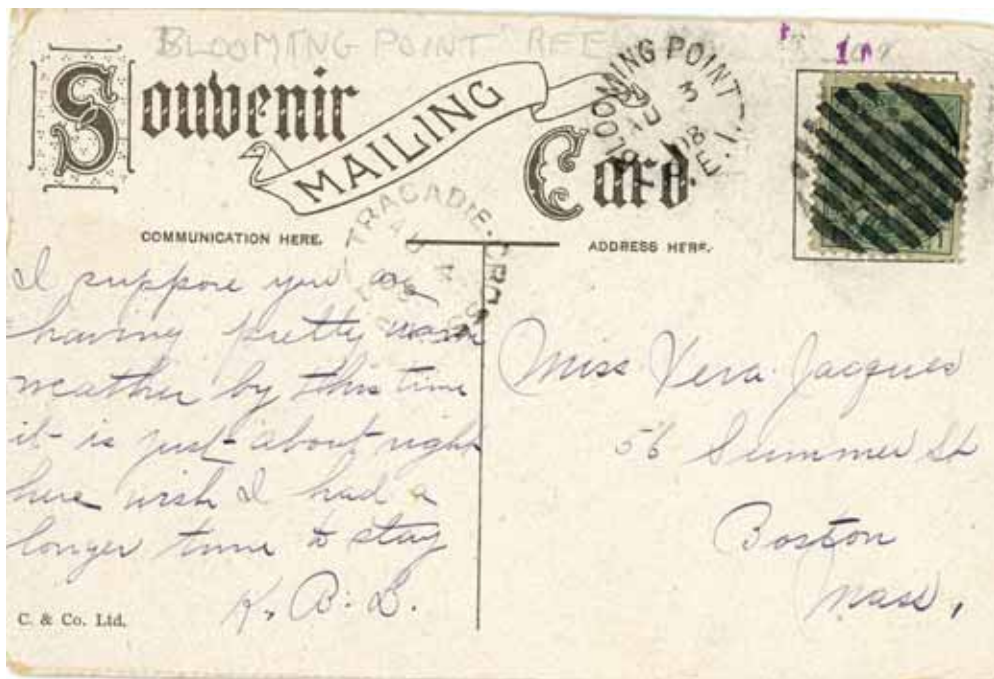 BLOOMING POINT
Souvenir
MAILING
Card.
BLOOMING POINT
AU 3
08
P.E.I.
TRACADIE CROSS
AU 4
08
COMMUNICATION HERE.
ADDRESS HERE.
I suppose you are
having pretty warm
weather by this time
it is just about right
here wish I had a
longer time to stay
K. B. L.
C. & Co. Ltd.
Miss Vera Jacques
56 Summer St
Boston
Mass,